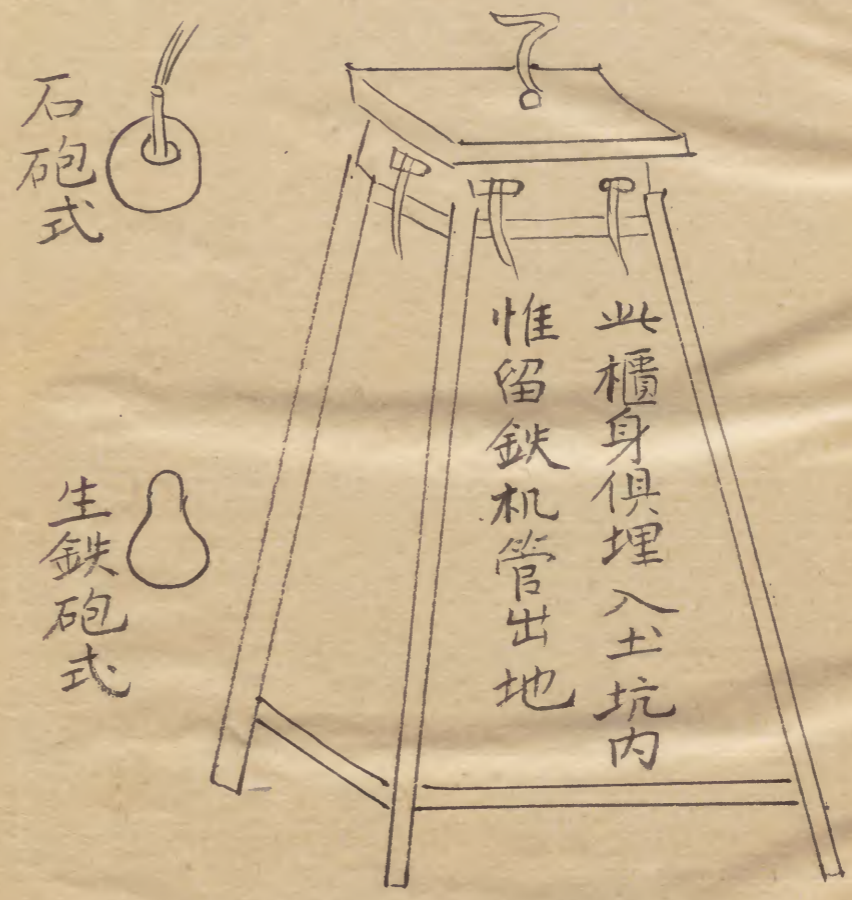 此櫃身俱埋入土坑内
惟留鉄机管出地
石砲式
生鉄砲式